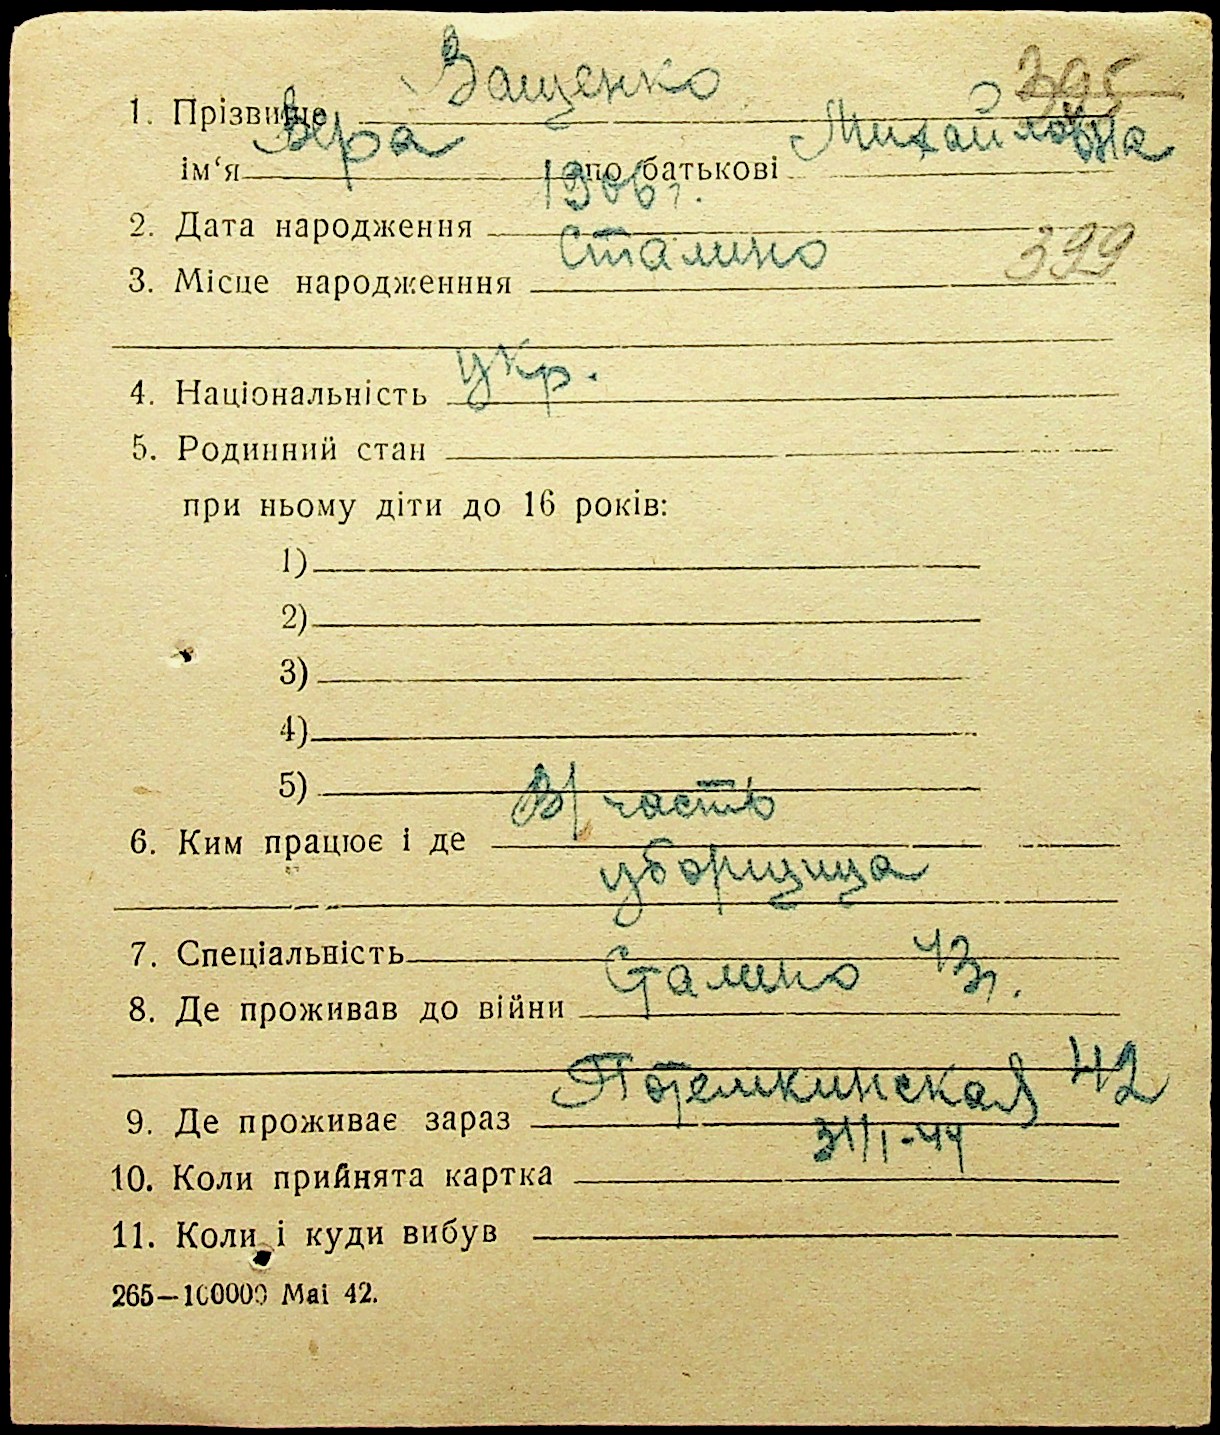 1. Прізвище Ващенко 395
ім‘я Вера по батькові Михайловна
2. Дата народження 1906 г.
3. Місце народженння Сталино 399
4. Національність укр.
5. Родинний стан
при ньому діти до 16 років:
1)
2)
3)
4)
5)
6. Ким працює і де В/часть
уборщица
7. Спеціальність
8. Де проживав до війни Сталино 43 г.
9. Де проживає зараз Потемкинская 42
10. Коли прийнята картка 31/I-44
11. Коли і куди вибув
265—100000 Маі 42.